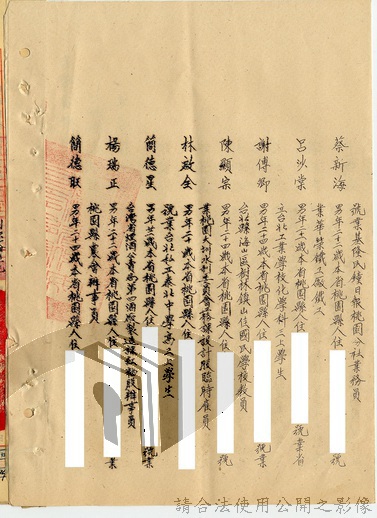 蔡新海 男年二十二歲本省桃園縣人住 號
業基隆民眾日報桃園分社業務員
呂沙棠 男年二十四歲本省桃園縣人住 號業省
立台北工業學校化學科三上學生
謝傳卿 男年二十四歲本省桃園縣人住 號業
台北縣海山區樹林鎮山佳國民學校教員
陳顯宗 男年二十四歲本省桃園縣人住 號
業桃園大圳水利委員會 設計股臨時雇員
林啟全 男年二十歲本省桃園縣人住
號業台北私立泰北中學高三上學生
簡德星 男年廿 歲本省桃園縣人住 號業
台灣省菸酒公賣局第四酒廠製造課紅 股辦事員
楊瑞正 男年二十二歲本省桃園縣人住 業
桃園縣農會辦事員
簡德取 男年二十四歲本省桃園縣人住
請合法使用公開之影像